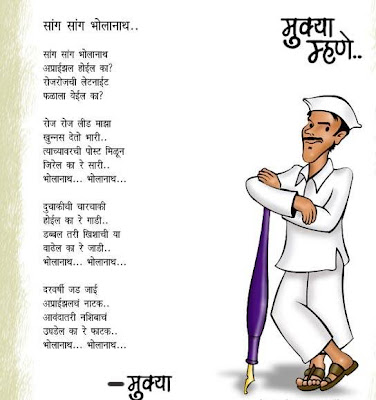 सांग सांग भोलानाथ..
मुक्या
म्हणे..
सांग सांग भोलानाथ
अप्राईझल होईल का?
रोजरोजची लेटनाईट
फळाला येईल का?
रोज रोज लीड माझा
खुन्नस देतो भारी..
त्याच्यावरची पोस्ट मिळून
जिरेल का रे सारी..
भोलानाथ... भोलानाथ...
दुचाकीची चारचाकी
होईल का रे गाडी..
डब्बल तरी खिशाची या
वाढेल का रे जाडी..
भोलानाथ... भोलानाथ...
दरवर्षी जड जाई
अप्राईझलचं नाटक..
आवंदातरी नशिबाचं
उघडेल का रे फाटक..
भोलानाथ... भोलानाथ...
–मुक्या